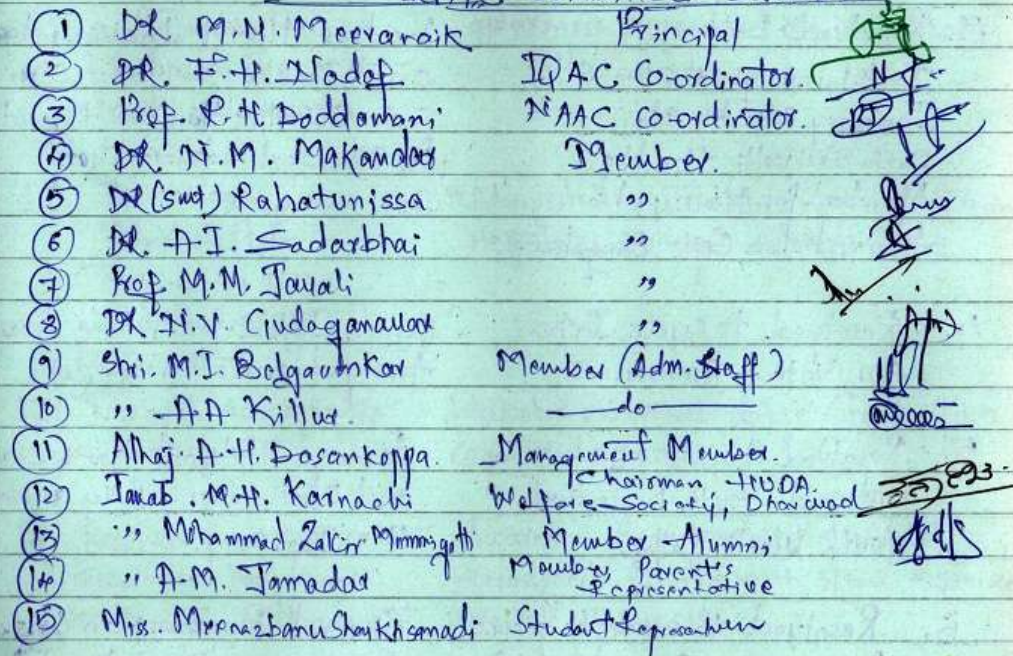 1 DR M.N. Meeranaik Principal
2 DR. F.H. Nadaf IQAC Co-ordinator.
3 Prof. R.H Doddamani NAAC Co-ordinator.
4 DR. N.M. Makandar Member.
5 DR (Smt) Rahatunissa ,,
6 DR. A.I. Sadarbhai ,,
7 Prof M.M. Javali ,,
8 DR N.V. Gudaganavar ,,
9 Shri. M.I. Belgaumkar Member (Adm. Staff)
10 ,, A A Killur. — do —
11 Alhaj. A.H. Dasankoppa. Management Member.
12 Janab. M.H. Karnachi Chairman HUDA
Welfare Society, Dharwad
13 ,, Mohammad Zakir Member Alumni
14 ,, A.M. Jamadar Member Parent's
Representative
15 Miss. Student